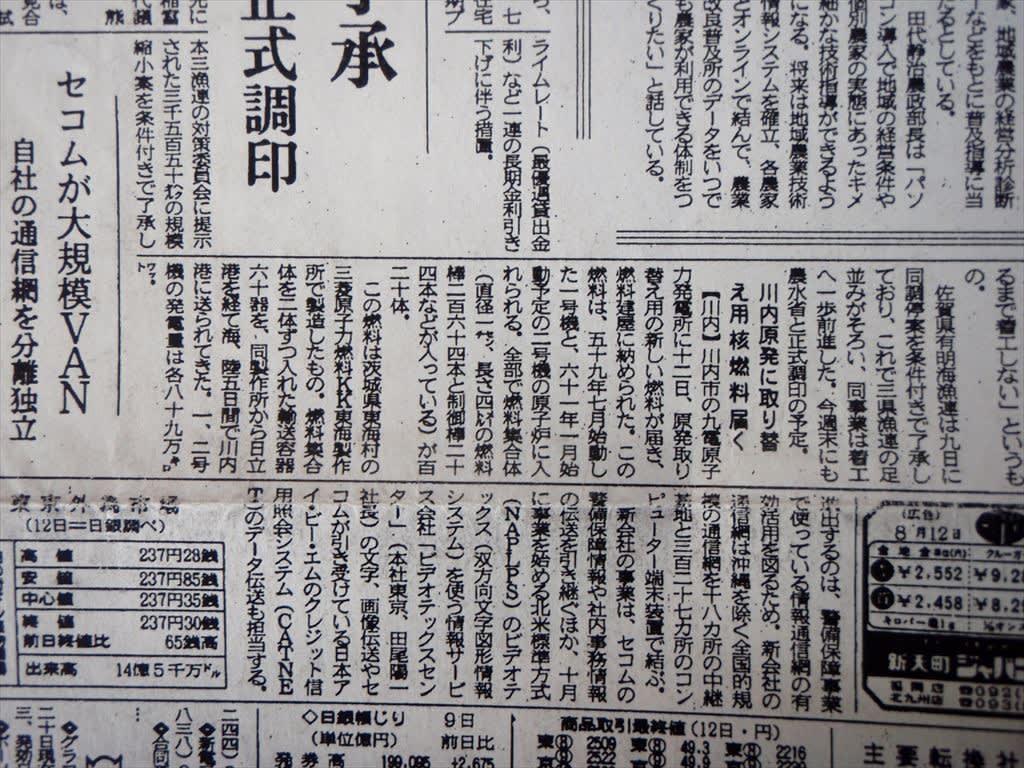 家、地域農業の経営分析診断
ーなどをもとに普及指導に当
たるとしている。
田代静治農政部長は「パソ
コン導入で地域の経営条件や
個別農家の実態にあったキメ
細かな技術指導ができるよう
になる。将来は地域農業技術
情報システムを確立、各農家
とオンラインで結んで、農業
改良普及所のデータをいつで
も農家が利用できる体制をつ
くりたい」と話している。
ライムレート（最優遇貸出金
利）など一連の長期金利引き
下げに伴う措置。
了承
正式調印
本三漁連の対策委員会に提示
された三千五百五十㌶の規模
縮小案を条件付きで了承し
セコムが大規模VAN
自社の通信網を分離独立
るまで着工しない」というも
の。
佐賀県有明海漁連は九日に
同調停案を条件付きで了承し
ており、これで三県漁連の足
並みがそろい、同事業は着工
へ一歩前進した。今週末にも
農水省と正式調印の予定。
川内原発に取り替
え用核燃料届く
【川内】川内市の九電原子
力発電所に十二日、原発取り
替え用の新しい燃料が届き、
燃料建屋に納められた。この
燃料は、五十九年七月始動し
た一号機と、六十一年一月始
動予定の二号機の原子炉に入
れられる。全部で燃料集合体
（直径一㌢、長さ四㍍の燃料
棒二百六十四本と制御棒二十
四本などが入っている）が百
二十体。
この燃料は茨城県東海村の
三菱原子力燃料KK東海製作
所で製造したもの。燃料集合
体を二体ずつ入れた輸送容器
六十器を、同製作所から日立
港を経て海、陸五日間で川内
港に送られてきた。一、二号
機の発電量は各八十九万㌔
㍗。
進出するのは、警備保障事業
で使っている情報通信網の有
効活用を図るため。新会社の
通信網は沖縄を除く全国的規
模の通信網を十八カ所の中継
基地と三百二十七カ所のコン
ピューター端末装置で結ぶ。
新会社の事業は、セコムの
警備保障情報や社内事務情報
の伝送を引き継ぐほか、十月
に事業を始める北米標準方式
（NAPLPS）のビデオテ
ックス（双方向文字図形情報
システム）を使う情報サービ
ス会社「ビデオテックスセン
ター」（本社東京、田尾陽一
社長）の文字、画像伝送やセ
コムが引き受けている日本ア
イ・ビー・エムのクレジット信
用照会システム（CATNE
T）のデータ伝送も担当する。
東京外為市場
（12日＝日銀調べ）
高値 237円28銭
安値 237円85銭
中心値 237円35銭
終値 237円30銭
前日終値比 65銭高
出来高 14億5千万㌦
（広告）
8月12日
￥2,552
￥2,458
新天町
福岡店
北九州店
◇日銀帳じり 9日
（単位億円） 前日比
発券高 199,095 +2,675
商品取引最終値（12日・円）
2509 49.3 2216
2522
主要転換社